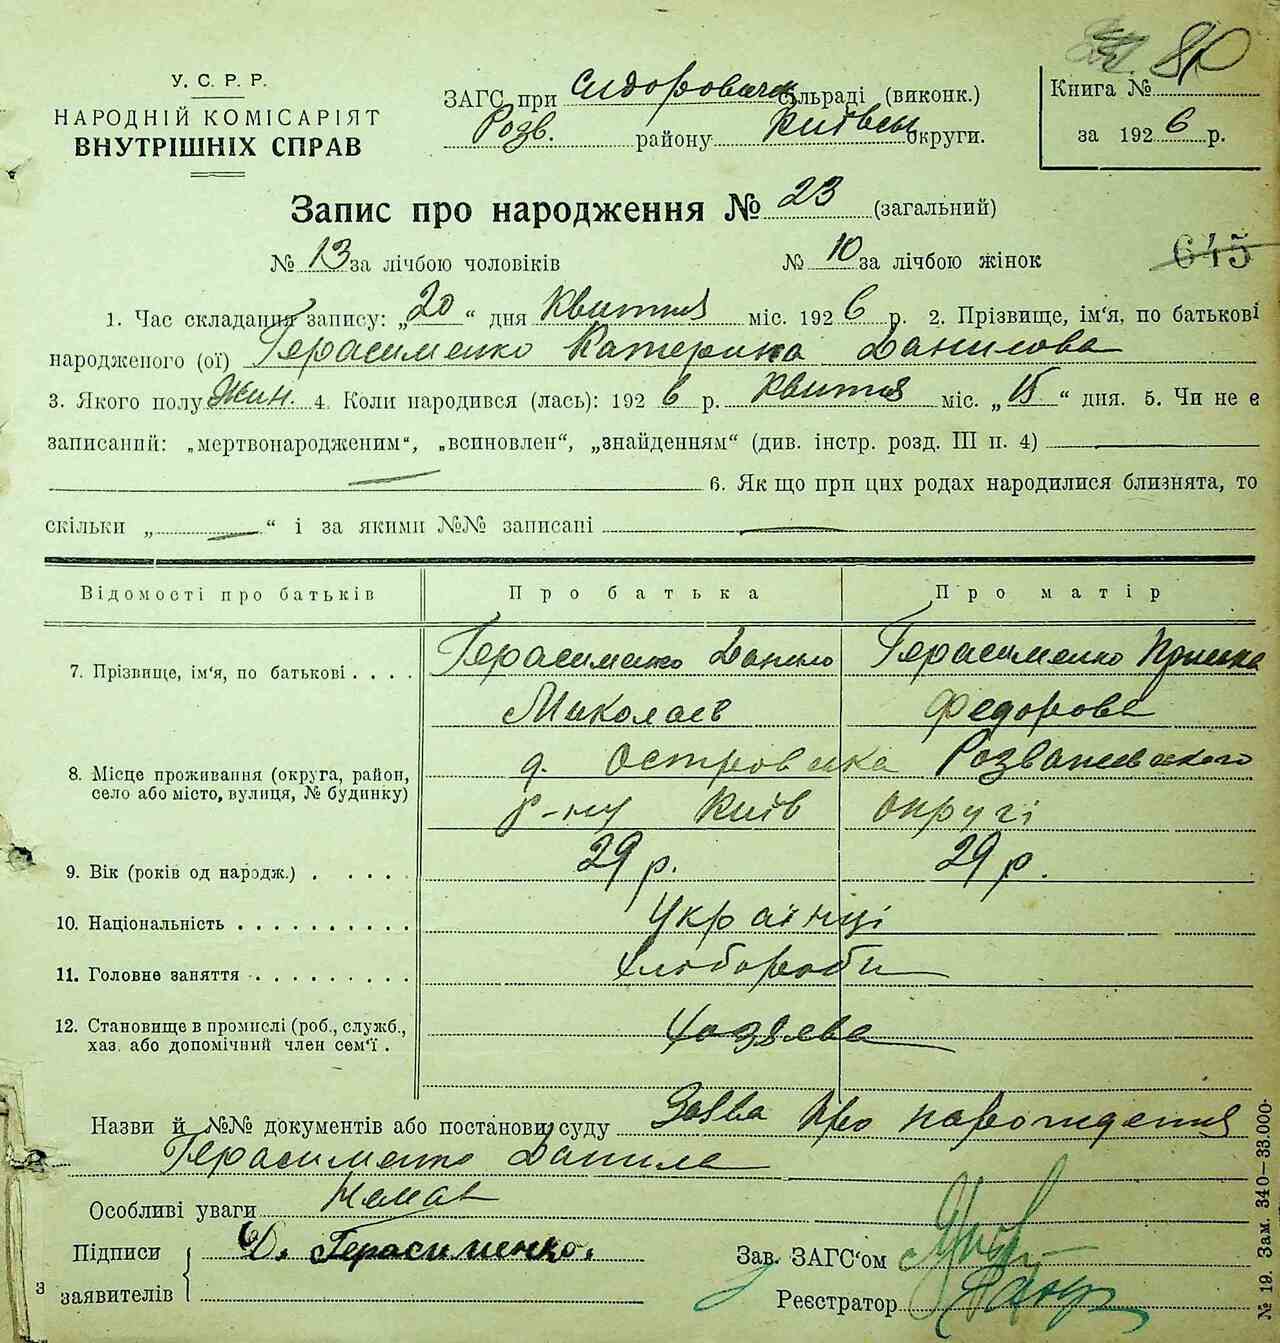 У. С. Р. Р.
НАРОДНІЙ КОМІСАРІЯТ
ВНУТРІШНІХ СПРАВ
ЗАГС при Сидоровичс. сільраді (виконк.)
Розв. району Київськ округи.
Книга № 80
за 1926 р.
Запис про народження № 23 (загальний)
№ 13 за лічбою чоловіків № 10 за лічбою жінок
645
1. Час складання запису: „20“ дня Квитня міс. 1926 р. 2. Прізвище, ім‘я, по батькові
народженого (ої) Герасименко Катерина Данилова
3. Якого полу Жин. 4. Коли народився (лась): 1926 р. Квитня міс. „15“ дня. 5. Чи не є
записаний: „мертвонародженим“, „всиновлен“, „знайденням“ (див. інстр. розд. III п. 4)
6. Як що при цих родах народилися близнята, то
скільки „ “ і за якими №№ записані
Відомості про батьків Про батька Про матір
7. Прізвище, ім‘я, по батькові . . . . Герасименко Данило Герасименко Приська
Миколаєв Федорова
8. Місце проживання (округа, район, село або місто, вулиця, № будинку) д. Островка Розважевського
р-ну Київ округі
9. Вік (років од народж.) . . . . . 29 р. 29 р.
10. Національність . . . . . . . . . . Українці
11. Головне заняття . . . . . . . . . Хлібороби
12. Становище в промислі (роб., служб., хаз. або допомічний член сем‘ї . Хозяєва
Назви й №№ документів або постанови суду Заява про народждения
Герасименко Данила
Особливі уваги Немає
Підписи заявителів Д. Герасименко.
Зав. ЗАГС‘ом
Реєстратор
З
№ 19. Зам. 340—33.000-